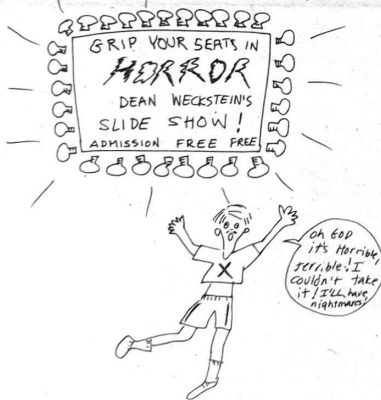 GRIP YOUR SEATS IN
HORROR
DEAN WECKSTEIN'S
SLIDE SHOW!
ADMISSION FREE FREE
X
oh GOD
it's Horrible,
terrible! I
couldn't take
it! I'LL have
nightmares